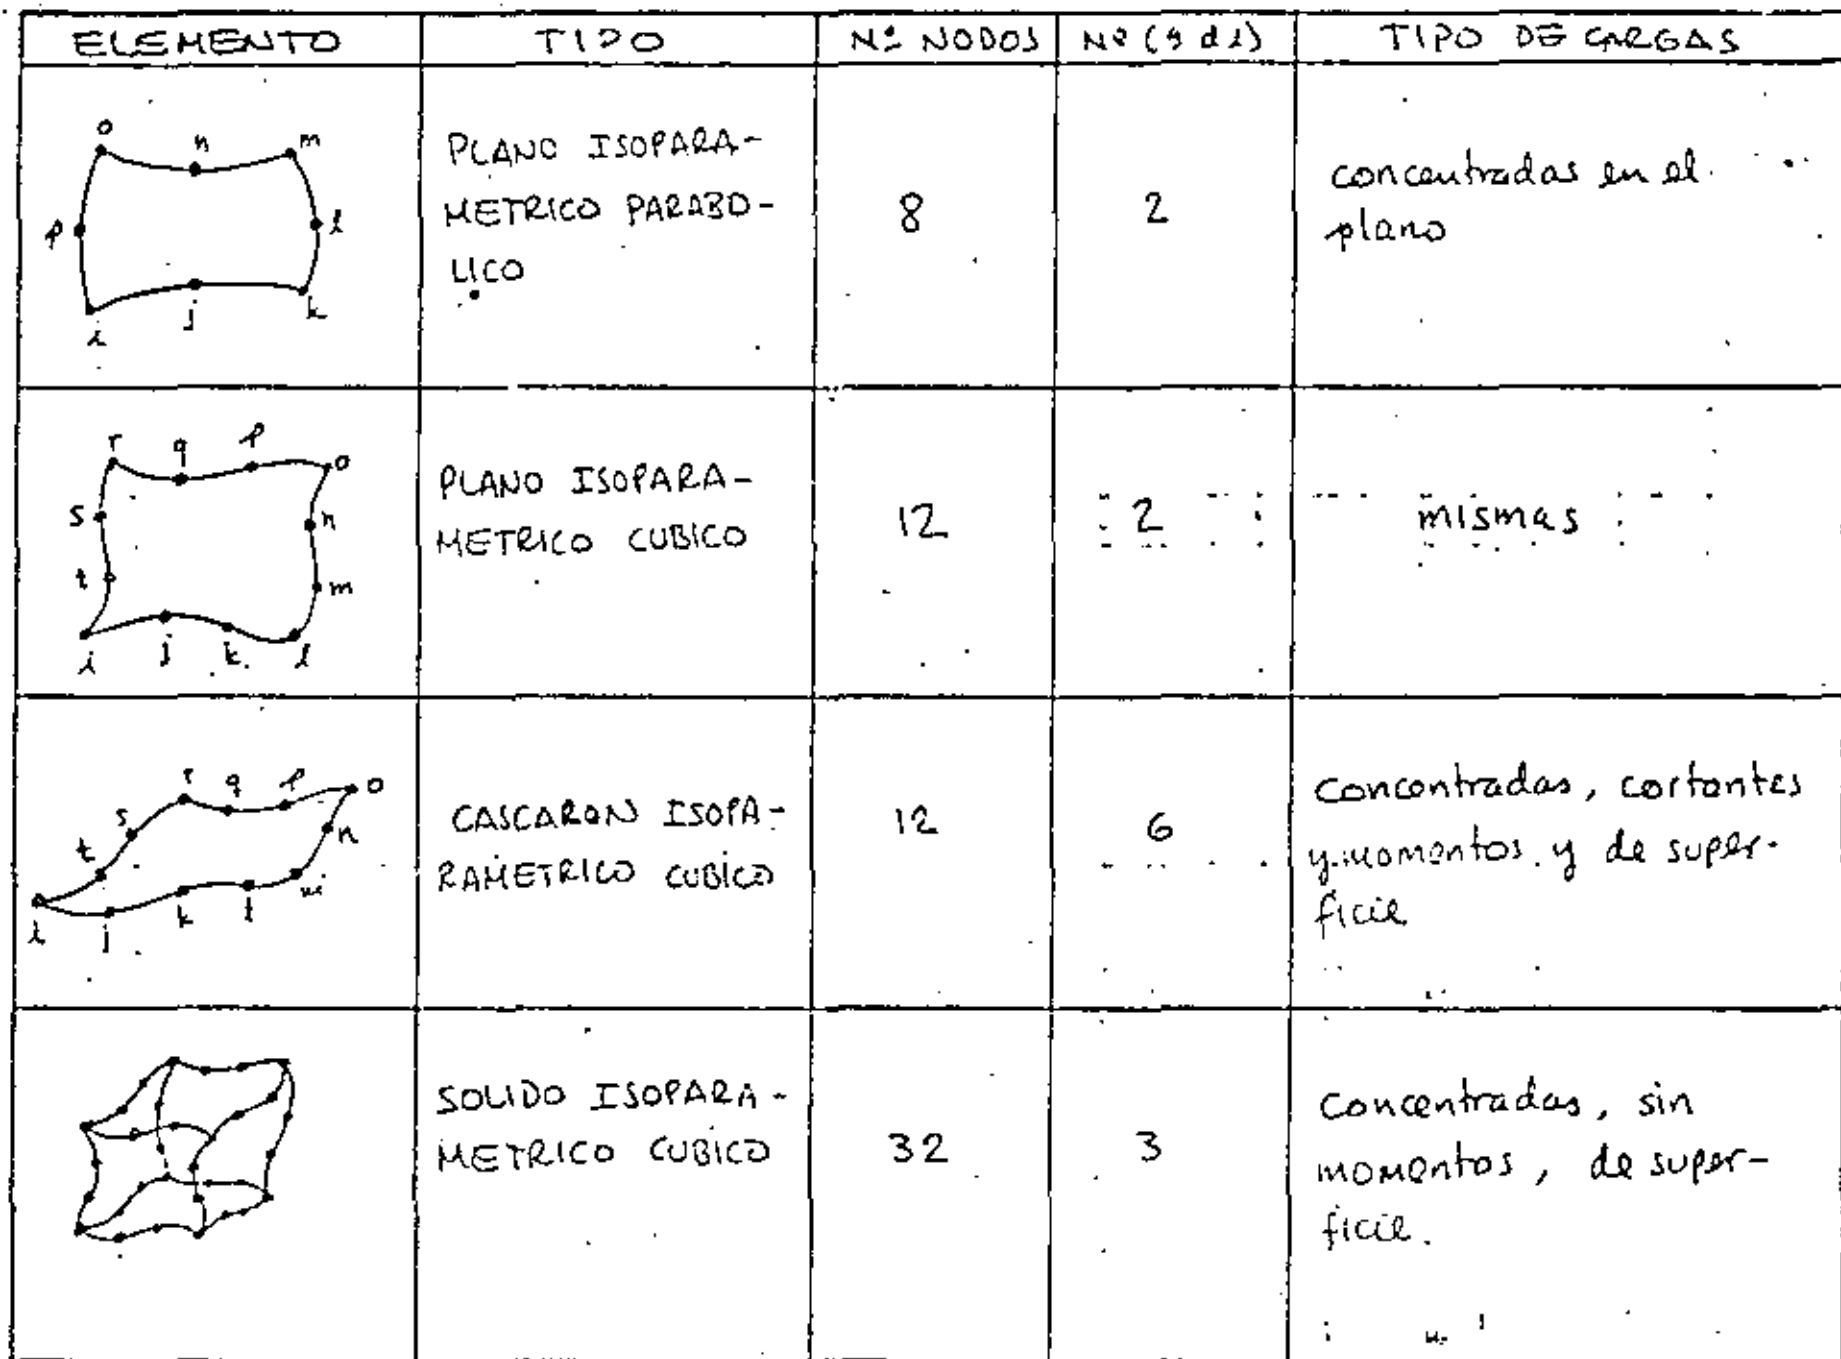 ELEMENTO TIPO Nº NODOS Nº (g dl) TIPO DE CARGAS
o n m
p l
i j k
PLANO ISOPARA-
METRICO PARABO-
LICO
8
2
concentradas en el
plano
r q p o
s n
t m
i j k l
PLANO ISOPARA-
METRICO CUBICO
12
2
mismas
r q p o
s n
t
i j k l m
CASCARON ISOPA-
RAMETRICO CUBICO
12
6
Concentradas, cortantes
y momentos y de super-
ficie
SOLIDO ISOPARA-
METRICO CUBICO
32
3
Concentradas, sin
momentos, de super-
ficie.